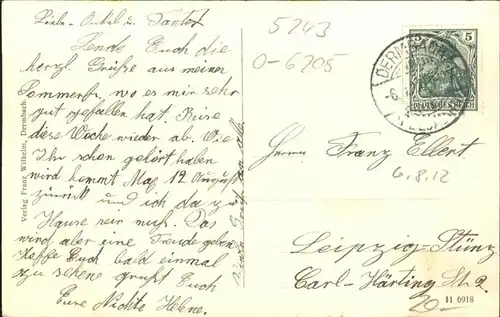 Liebe Onkel u. Tante!
Sende Euch die
herzl. Grüße aus meiner
Sommerfr. wo es mir sehr
gut gefallen hat. Reise
diese Woche wieder ab. Wie
Ihr schon gehört haben
wird kommt Max 12 August
zurück und ich da zu
Hause sein muß. Das
wird aber eine Freude geben.
Hoffe Euch bald einmal
zu sehen grüßt Euch
Eure Nichte Helene.
Verlag Franz Wilhelm, Dermbach.
5243
0-6205
5
DEUTSCHES REICH
DERMBACH
Herrn Franz Ellert
6.8.12
Leipzig-Stünz
Carl-Härting St. 2.
20-
11 6918